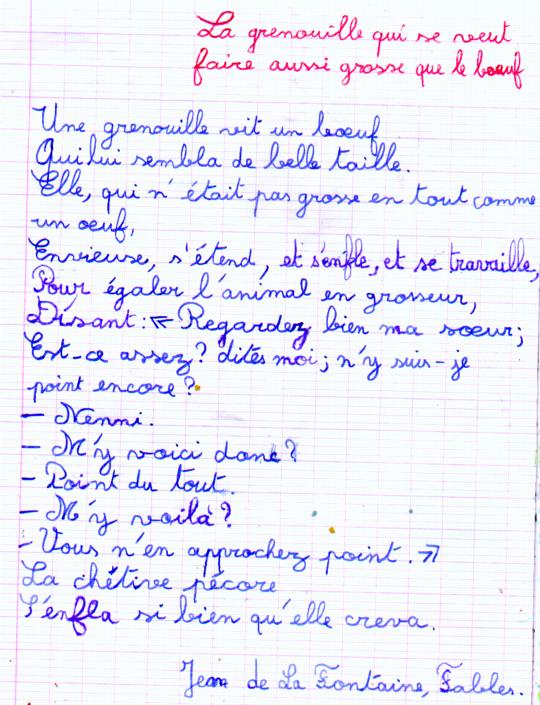 La grenouille qui se veut
faire aussi grosse que le boeuf
Une grenouille vit un boeuf
Qui lui sembla de belle taille.
Elle, qui n'était pas grosse en tout comme
un oeuf,
Envieuse, s'étend, et s'enfle, et se travaille,
Pour égaler l'animal en grosseur,
Disant : « Regardez bien ma soeur ;
Est-ce assez ? dites moi ; n'y suis-je
point encore ?
– Nenni.
– M'y voici donc ?
– Point du tout.
– M'y voilà ?
– Vous n'en approchez point. »
La chétive pécore
S'enfla si bien qu'elle creva.
Jean de La Fontaine, Fables.